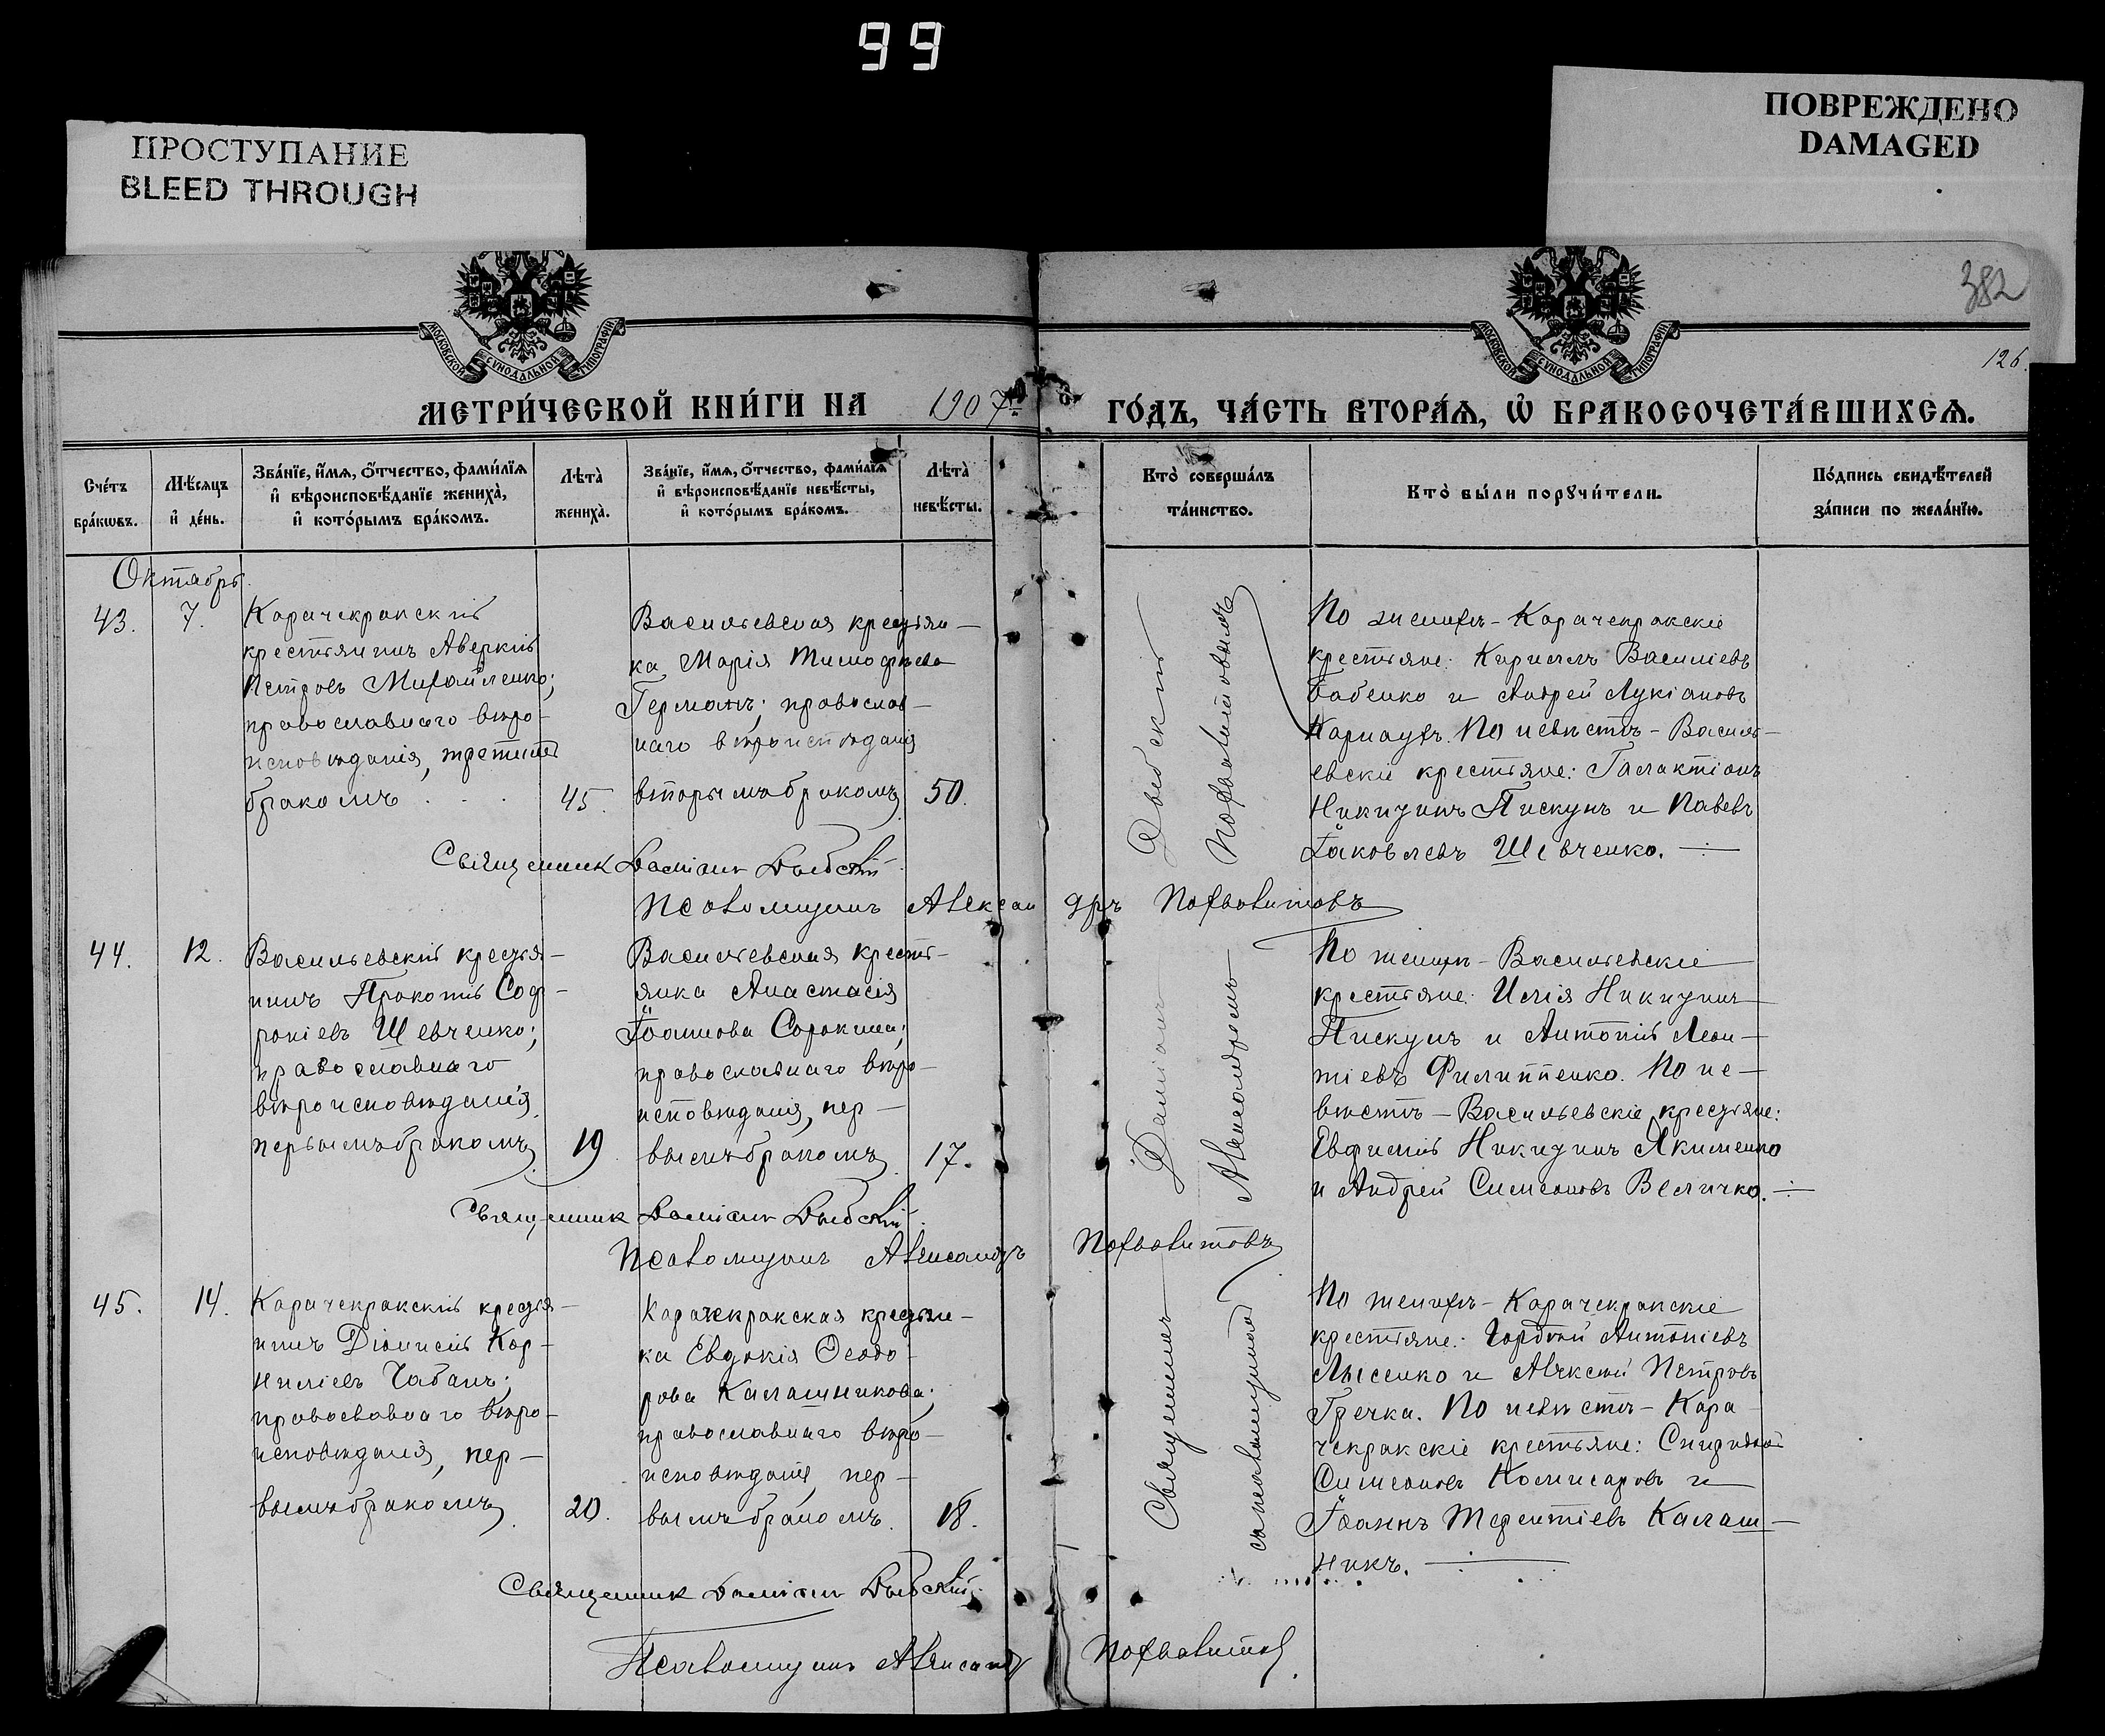 99
ПРОСТУПАНИЕ
BLEED THROUGH
ПОВРЕЖДЕНО
DAMAGED
382
126.
МОСКОВСКОЙ СѴНОДАЛЬНОЙ ТИПОГРАФІИ
МОСКОВСКОЙ СѴНОДАЛЬНОЙ ТИПОГРАФІИ
МЕТРИ́ЧЕСКОЙ КНИ́ГИ НА 1907 ГО́ДЪ, ЧА́СТЬ ВТОРА́Ѧ, Ѡ҆ БРАКОСОЧЕТА́ВШИХСѦ.
Сче́тъ
бра́кѡвъ.
Мѣ́сѧцъ
и҆ де́нь.
Зва́нїе, и҆́мѧ, ѻ҆́тчество, фами́лїѧ
и҆ вѣроисповѣ́данїе жениха̀,
и҆ кото́рымъ бра́комъ.
Лѣта̀
жениха̀.
Зва́нїе, и҆́мѧ, ѻ҆́тчество, фами́лїѧ
и҆ вѣроисповѣ́данїе невѣ́сты,
и҆ кото́рымъ бра́комъ.
Лѣта̀
невѣ́сты.
Кто̀ соверша́лъ
та́инство.
Кто̀ бы́ли порꙋчи́тели.
По́дпись свидѣ́телей
за́писи по жела́нїю.
Октябрь
43.
7.
Карачекракскій
крестьянинъ Аверкій
Петровъ Михайленко;
православнаго вѣро-
исповѣданія, третьимъ
бракомъ
45.
Васильевская крестьян-
ка Марія Тимофѣева
Германъ; православ-
наго вѣроисповѣданія
вторымъ бракомъ
50.
Дыбскій
Похвалитовымъ
По женихѣ - Карачекракскіе
крестьяне: Кириллъ Василіевъ
Бабенко и Андрей Лукіановъ
Карнаухъ. По невѣстѣ - Василь-
евскіе крестьяне: Галактіонъ
Никитинъ Пискунъ и Павелъ
Іаковлевъ Шевченко.
Священник Даміанъ Дыбскій
Псаломщикъ Александръ Похвалитовъ
44.
12.
Васильевскій крестья-
нинъ Прокопій Соф-
роніевъ Шевченко;
православнаго
вѣроисповѣданія
первымъ бракомъ
19
Васильевская кресть-
янка Анастасія
Іоаннова Сорокина;
православнаго вѣро-
исповѣданія, пер-
вымъ бракомъ
17.
Даміанъ
Александромъ
По женихѣ - Васильевскіе
крестьяне: Илія Никитинъ
Пискунъ и Антоній Леон-
тіевъ Филиппенко. По не-
вѣстѣ - Васильевскіе крестьяне:
Евфимій Никитинъ Якименко
и Андрей Симеоновъ Величко.
Священник Даміанъ Дыбскій
Псаломщикъ Александръ Похвалитовъ
45.
14.
Карачекракскій крестья-
нинъ Діонисій Кор-
ниліевъ Чабанъ;
православнаго вѣро-
исповѣданія, пер-
вымъ бракомъ
20.
Карачекракская крестьян-
ка Евдокія Ѳеодо-
рова Калашникова;
православнаго вѣро-
исповѣданія, пер-
вымъ бракомъ
18.
Священникъ
съ псаломщикомъ
По женихѣ - Карачекракскіе
крестьяне: Гордѣй Антоніевъ
Лысенко и Алексѣй Петровъ
Гречка. По невѣстѣ - Кара-
чекракскіе крестьяне: Спиридонъ
Симеоновъ Комисаровъ и
Іоаннъ Терентіевъ Калаш-
никъ.
Священник Даміанъ Дыбскій
Псаломщикъ Александръ Похвалитовъ